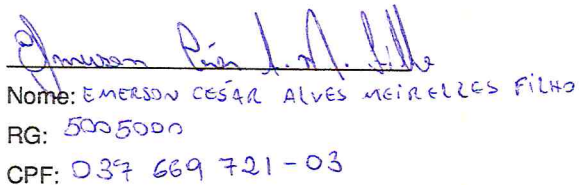 Emerson César A. M. Filho
Nome: EMERSON CESÁR ALVES MEIRELLES FILHO
RG: 5005000
CPF: 037 669 721-03